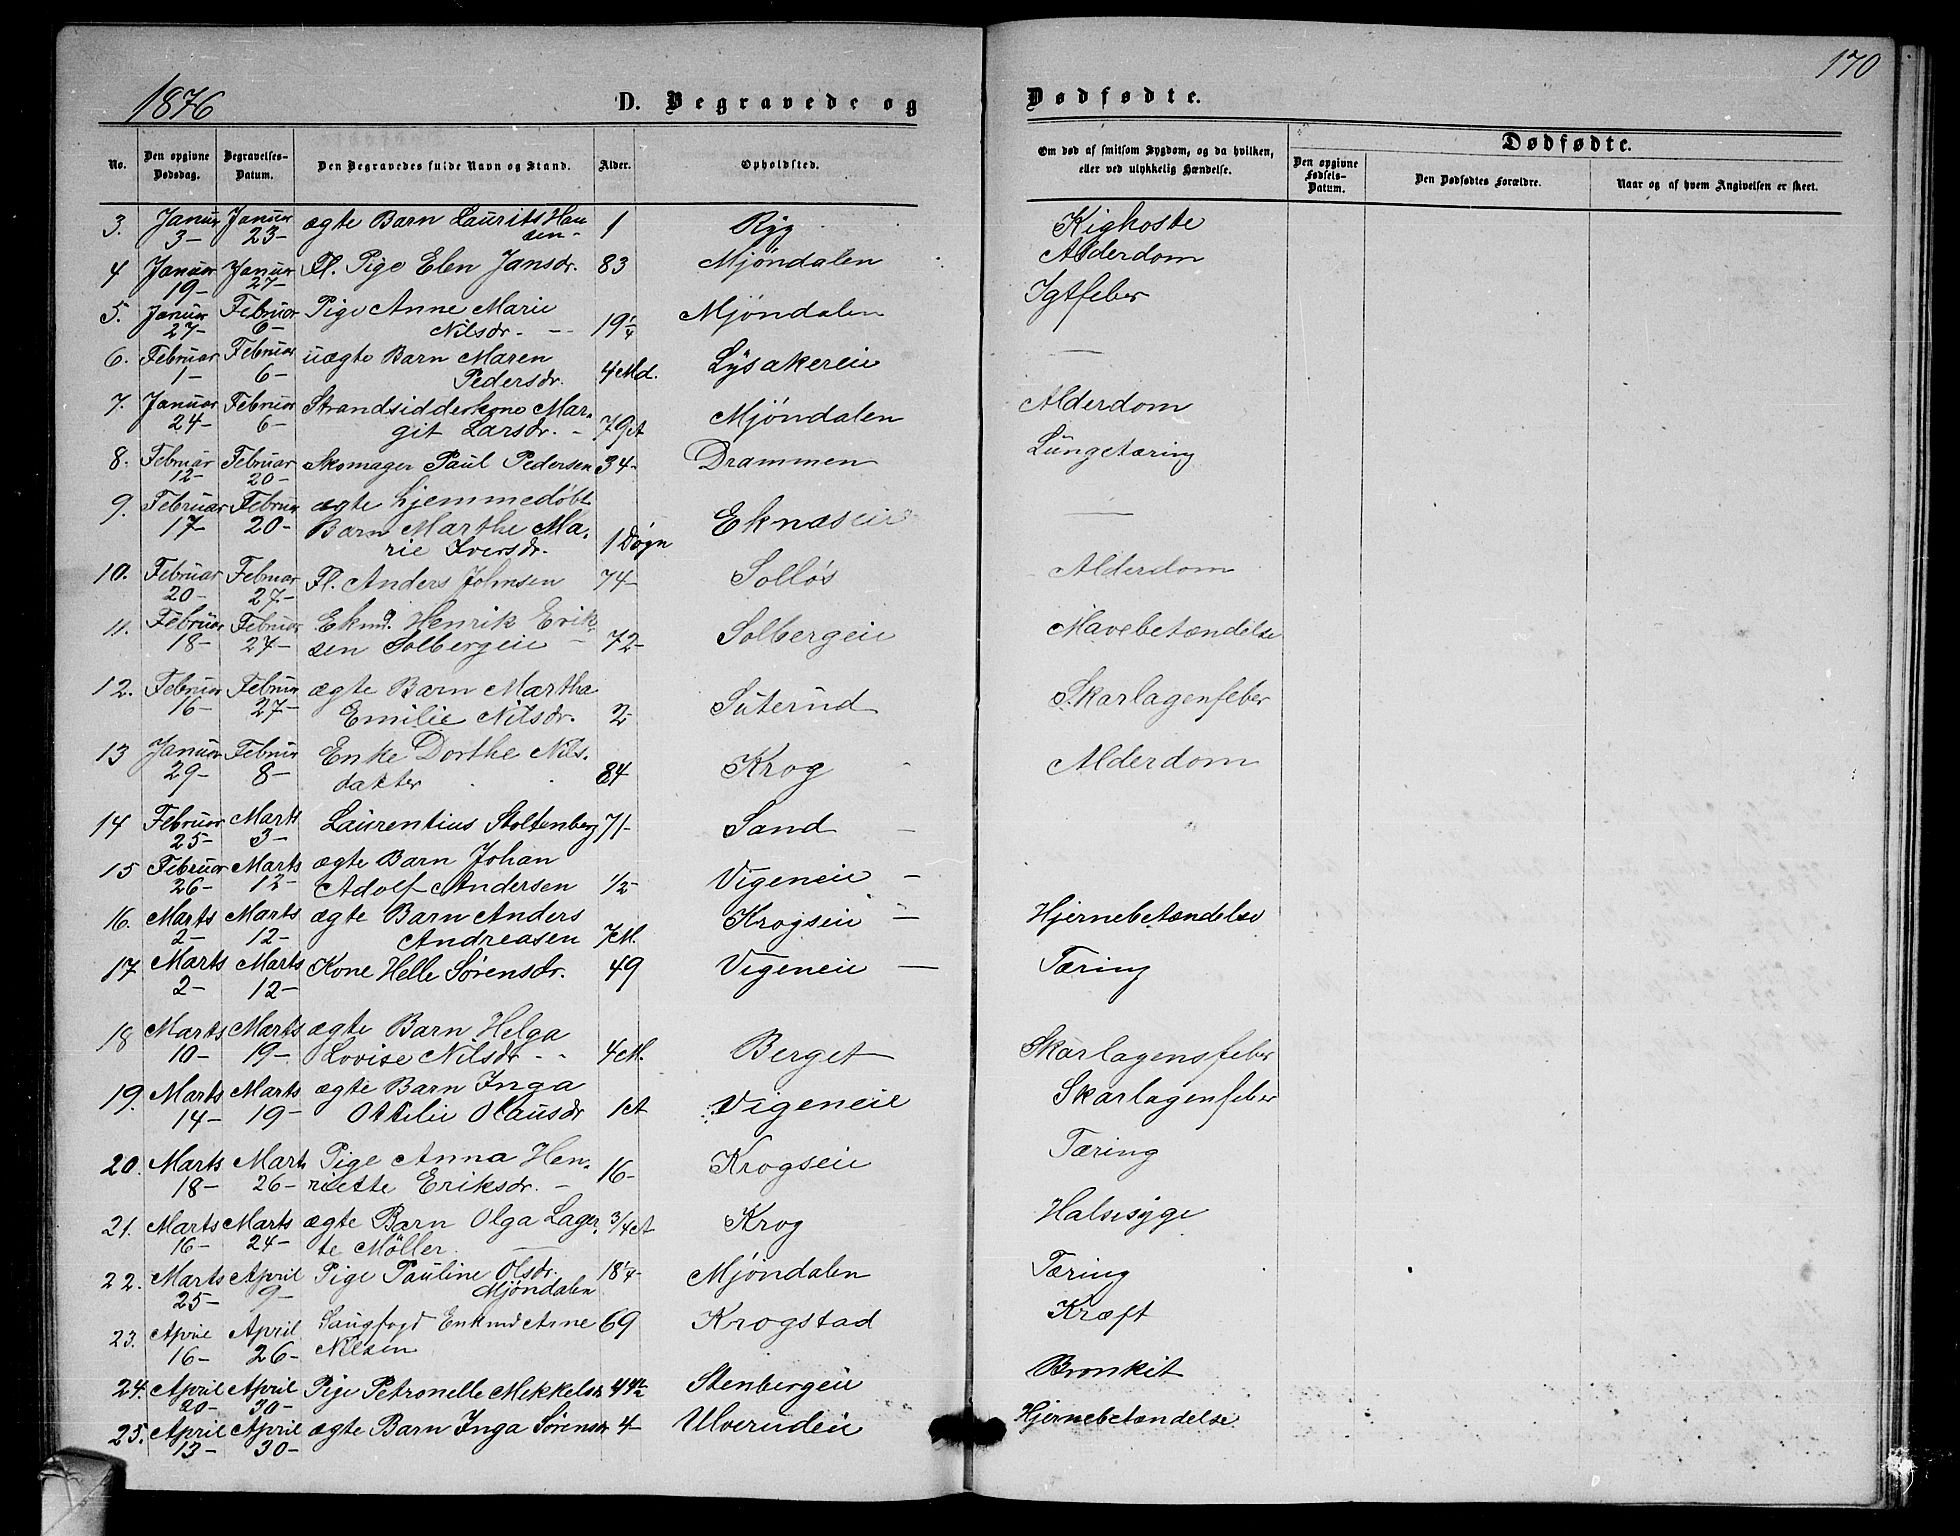 170
1876 D. Begravede og Dødfødte.
No. | Den opgivne Dødsdag. | Begravelses-Datum. | Den Begravedes fulde Navn og Stand. | Alder. | Opholdsted. | Om død af smitsom Sygdom, og da hvilken, eller ved ulykkelig Hændelse. | Dødfødte. | Den opgivne Fødsels-Datum. | Den Dødfødtes Forældre. | Naar og af hvem Angivelsen er skeet.
3. Januar 3- Januar 23- ægte Barn Laurits Hansen- 1 Ryg Kighoste
4 Januar 19- Januar 27- Fl. Pige Elen Jansdr. 83 Mjöndalen Alderdom
5. Januar 27- Februar 6- Pige Anne Marie Nilsdr. - 19 1/4 Mjöndalen Igtfeber
6. Februar 1- Februar 6- uægte Barn Maren Pedersdr. 4 Md. Lysakereie —
7. Januar 24- Februar 6- Strandsidderkone Margit Larsdr. - 79 A Mjöndalen Alderdom
8. Februar 12- Februar 20- Skomager Paul Pedersen 34- Drammen Lungetæring
9. Februar 17- Februar 20- ægte hjemmedøbt Barn Marthe Marie Iversdr. 1 Døgn Eknæseie —
10. Februar 20- Februar 27- Fl. Anders Johnsen 74- Solløs Alderdom
11. Februar 18- Februar 27- Ekmd. Henrik Eriksen Solbergeie - 72- Solbergeie Mavebetændelse
12. Februar 16- Februar 27- ægte Barn Martha Emilie Nilsdr. 2- Suterud Skarlagenfeber
13 Januar 29- Februar 8- Enke Dorthe Nilsdatter 84 Krog Alderdom
14 Februar 25- Marts 3- Laurentius Stoltenberg 71- Sand -
15 Februar 26- Marts 12- ægte Barn Johan Adolf Andersen 1/2- Vigeneie -
16. Marts 2- Marts 12- ægte Barn Anders Andreasen 7 M. Krogseie - Hjernebetændelse
17 Marts 2- Marts 12- Kone Helle Sørensdr. 49 Vigeneie — Tæring
18 Marts 10- Marts 19- ægte Barn Helga Lovise Nilsdr - - 4 M. Berget Skarlagensfeber
19. Marts 14- Marts 19- ægte Barn Inga Ottilie Olausdr 1 A Vigeneie Skarlagenfeber
20. Marts 18- Mart 26- Pige Anna Henriette Eriksdr. - 16- Krogseie Tæring
21. Marts 16- Marts 24- ægte Barn Olga Lagerte Möller. 3/4 A Krog Halsesyge
22. Marts 25- April 9- Pige Pauline Olsdr. Mjöndalen 18 1/4- Mjöndalen Tæring
23. April 16- April 26- Saugfogd Enkmd Arne Nilsen 69 Krogstad Kræft
24. April 20- April 30- Pige Petronelle Mekkelsdr 44 1/2 Stenbergeie Bronkit
25. April 13- April 30- ægte Barn Inga Sörensdr 4- Ulverudeie Hjernebetændelse